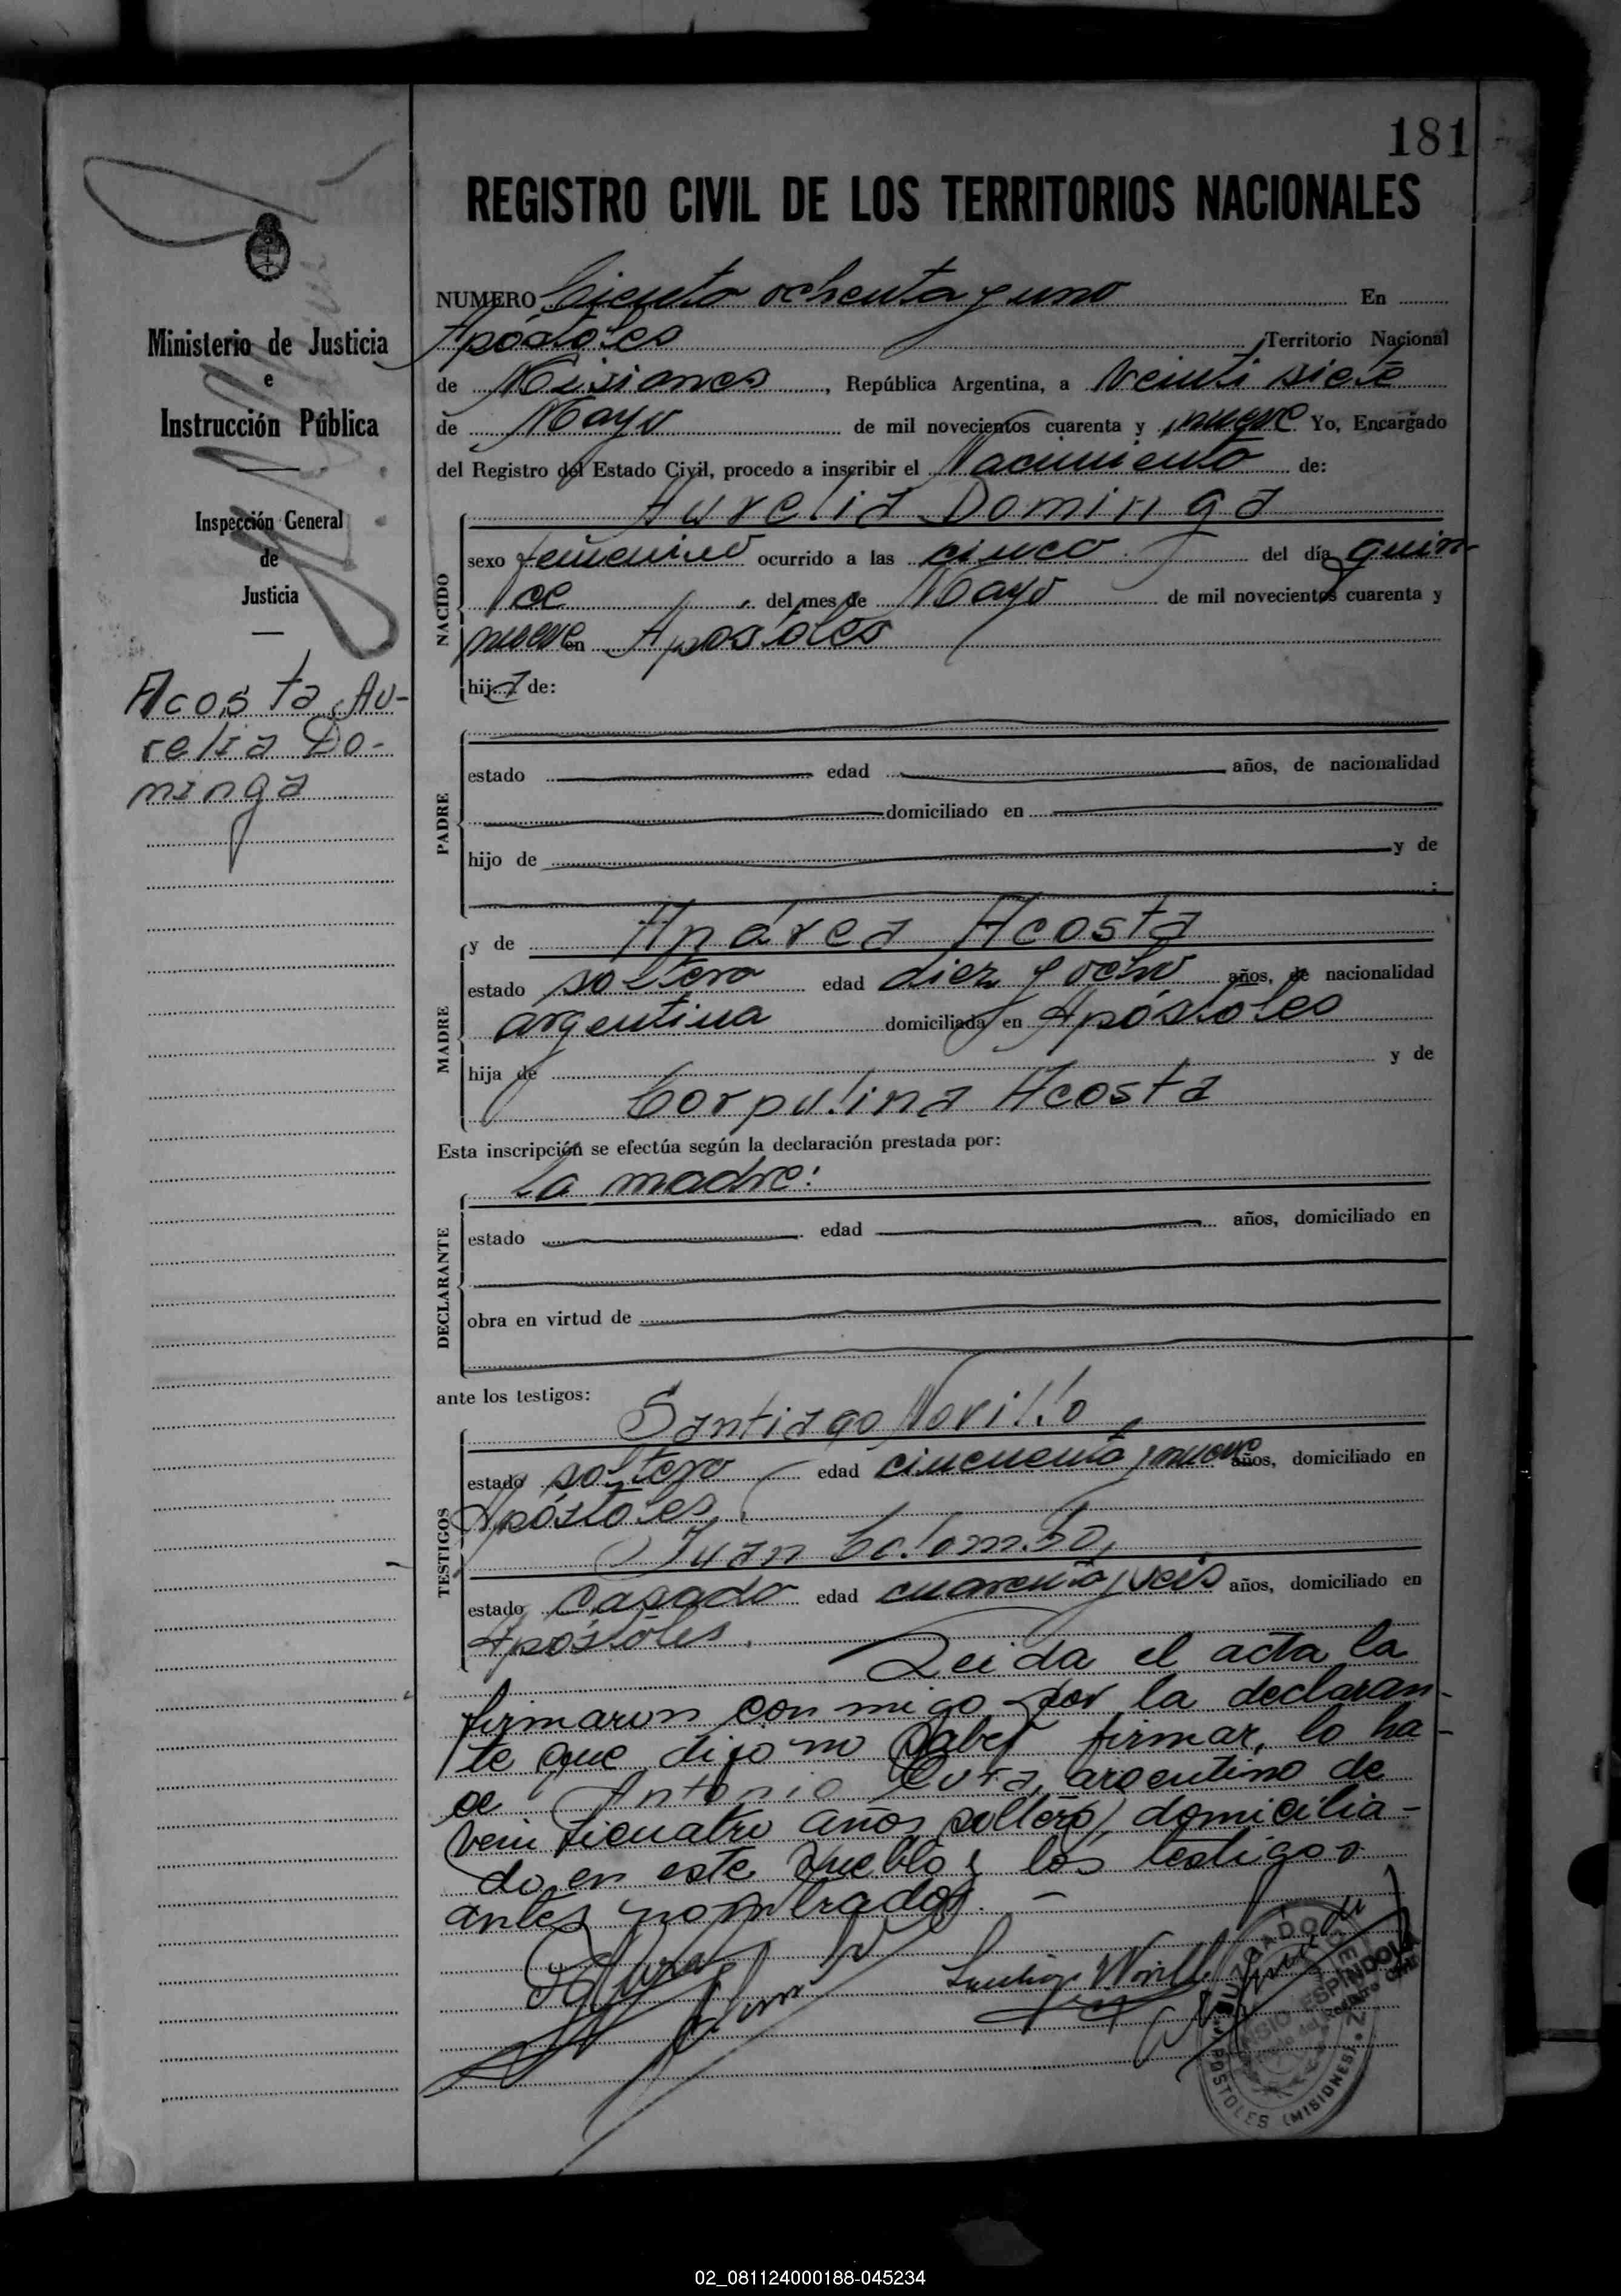 181
REGISTRO CIVIL DE LOS TERRITORIOS NACIONALES
Ministerio de Justicia
e
Instrucción Pública
Inspección General
de
Justicia
Acosta Au-
relia Do-
minga
NUMERO Ciento ochenta y uno En
Apóstoles Territorio Nacional
de Misiones, República Argentina, a veinti siete
de Mayo de mil novecientos cuarenta y nueve Yo, Encargado
del Registro del Estado Civil, procedo a inscribir el Nacimiento de:
Aurelia Dominga
NACIDO
sexo femenino ocurrido a las cinco del día quin-
ce del mes de Mayo de mil novecientos cuarenta y
nueve en Apóstoles
hija de:
PADRE
estado edad años, de nacionalidad
domiciliado en
hijo de y de
y de Andrea Acosta
MADRE
estado soltera edad diez y ocho años, de nacionalidad
argentina domiciliada en Apóstoles
hija de y de
Corpulina Acosta
Esta inscripción se efectúa según la declaración prestada por:
La madre:
DECLARANTE
estado edad años, domiciliado en
obra en virtud de
ante los testigos:
Santiago Novillo
TESTIGOS
estado soltero edad cincuenta y nueve años, domiciliado en
Apóstoles.
Juan Colombo,
estado casado edad cuarenta y seis años, domiciliado en
Apóstoles.
Leida el acta la
firmaron conmigo por la declaran-
te que dijo no saber firmar, lo ha-
ce Antonio argentino de
veinticuatro años soltero, domicilia-
do en este pueblo y los testigos
antes nombrados. -
JUZGADO DE PAZ
ESPINDOLA
APOSTOLES (MISIONES)
02_081124000188-045234